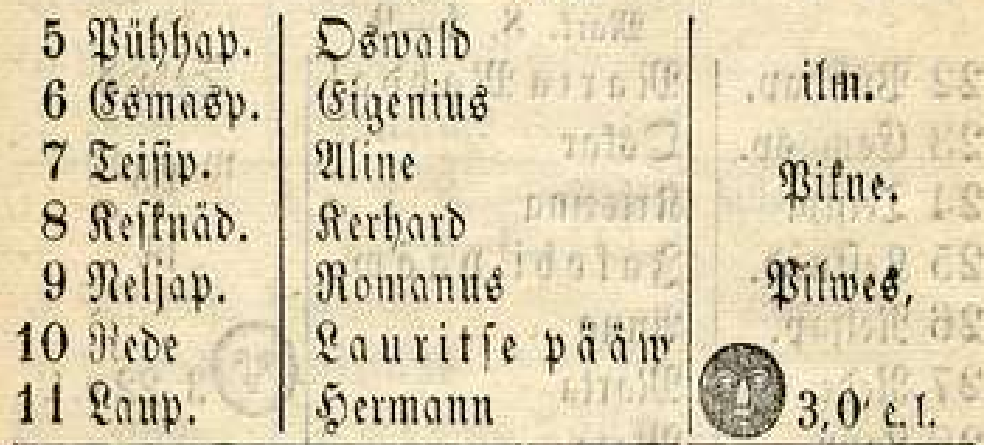 5 Pühhap. Oswald
ilm.
6 Esmasp. Eigenius
7 Teisip. Aline
Pikne.
8 Kesknäd. Kerhard
9 Neljap. Romanus
Pilwes,
10 Rede Lauritse pääw
11 Laup. Hermann
3,0' e. l.